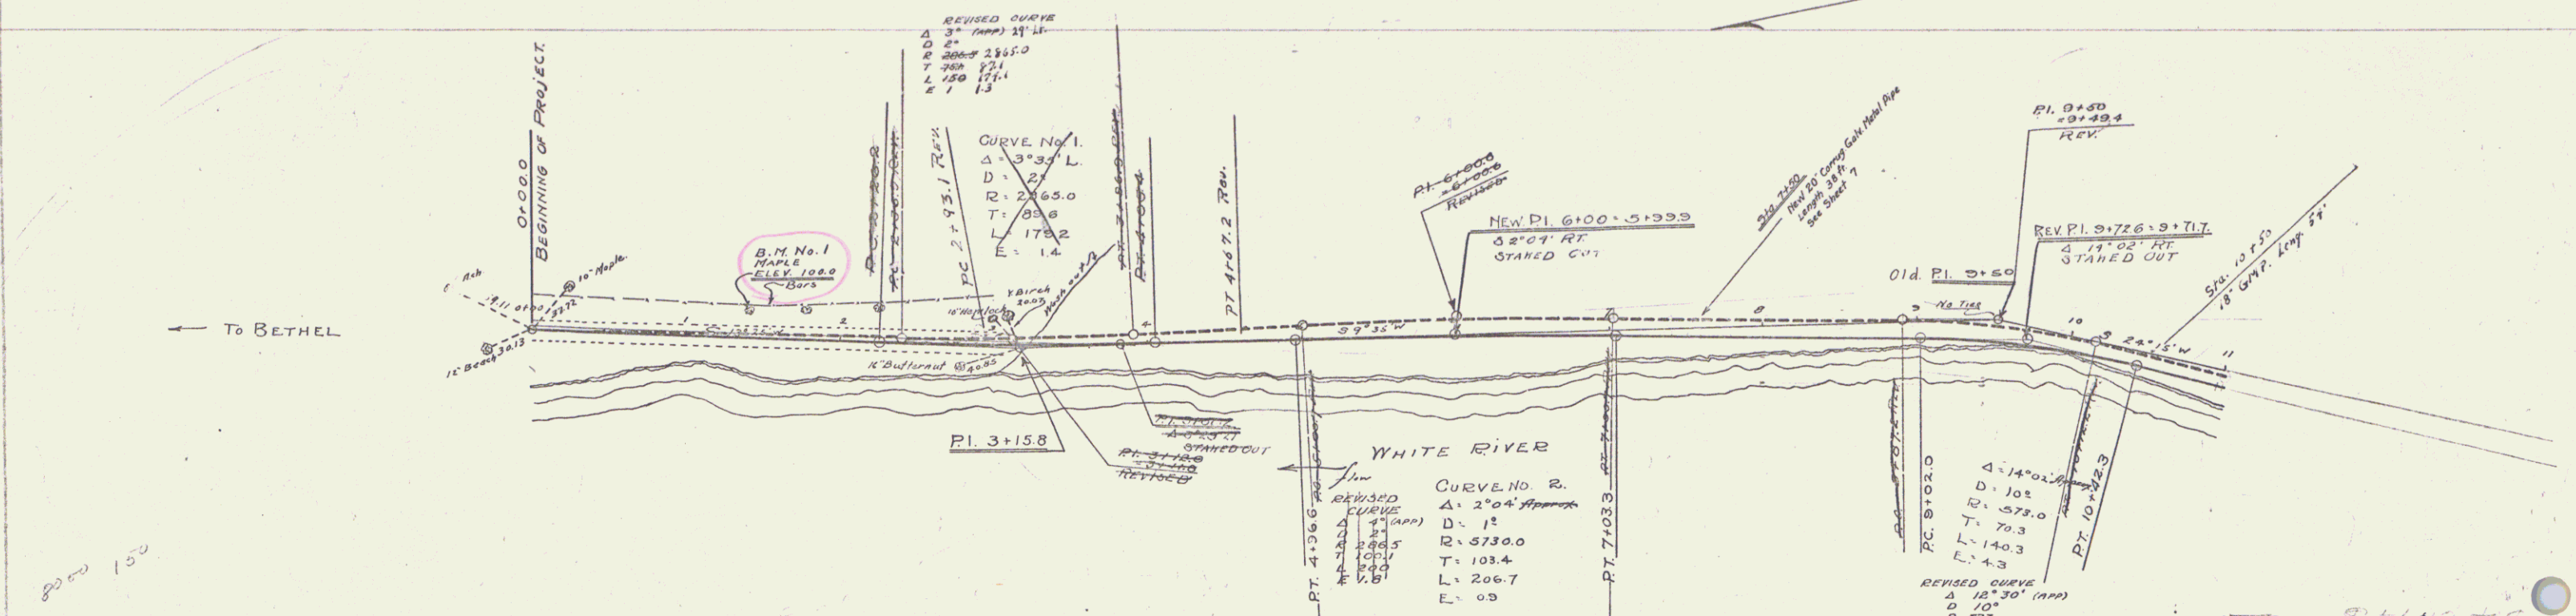 REVISED CURVE
Δ 3° (APP) 29' Lt.
D 2°
R 286.5 2865.0
T 75.1 87.1
L 150 174.1
E 1 1.3
0+00.0
BEGINNING OF PROJECT.
B.M. No. 1
MAPLE
ELEV. 100.0
Bars
PC 2+93.1 REV.
CURVE No. 1.
Δ = 3°35' L.
D = 2°
R = 2865.0
T = 89.6
L = 179.2
E = 1.4
PT 4+67.2 REV.
P.I. 6+00.0
= 6+00.6
REVISED
NEW P.I. 6+00 = 5+99.9
Δ 2°04' RT.
STAKED OUT
Sta. 7+50
New 20" Corrug Galv. Metal Pipe
Length 38 ft.
See Sheet 7
P.I. 9+50
= 9+49.4
REV.
Old P.I. 9+50
REV. P.I. 9+72.6 = 9+71.7
Δ 14°02' RT.
STAKED OUT
No Ties
Sta. 10+50
18" GMP. Leng. 54'
Ash
10" Maple
19.11
0+00
← TO BETHEL
12" Beech 30.13
1
2
Birch
20.07
16" Butternut
40.85
4
S 9°35' W
7
8
9
10
S 24°15' W
11
P.I. 3+15.8
STAKED OUT
REVISED
WHITE RIVER
flow
P.T. 4+96.6
REVISED
CURVE
Δ 4° (APP)
D 2°
R 2865
T 100.1
L 200
E 1.8
CURVE No. 2.
Δ = 2°04' Approx.
D = 1°
R = 5730.0
T = 103.4
L = 206.7
E = 0.9
P.T. 7+03.3
P.C. 9+02.0
Δ = 14°02'
D = 10°
R = 573.0
T = 70.3
L = 140.3
E = 4.3
P.T. 10+42.3
REVISED CURVE
Δ 12°30' (APP)
D 10°
8000 150